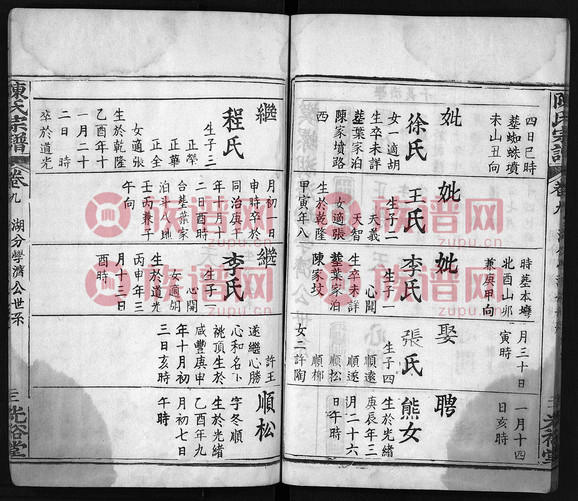 陳氏宗譜
卷九
四日巳時
葬蜘蛛墳
未山丑向
妣
徐氏
女一適胡
生卒未詳
葬葉家泊
陳家墳路
西
繼
程氏
生子三
正學
正華
正全
女適張
生於乾隆
乙酉年十
一月二十
二日時
卒於道光
妣
王氏
生子二
天義
天智
女適張
生於乾隆
甲寅年八
月初一日
申時卒於
同治庚午
年月十
二日酉時
台葬葉家
泊斗八地
壬丙兼子
午向
時葬本塝
北酉山卯
兼庚甲向
妣
李氏
生子一
心開
生卒未詳
葬葉家泊
陳家坟
繼
李氏
生子一
心開
女適胡
生於道光
丙申年三
月十三日
酉時
月三十日
寅時
娶
張氏
生子四
順遠
順遂
順松
順柳
女二許陶
許王
遂繼心勝
心和名卜
祧頂生於
咸豐庚申
年十月初
三日亥時
一月十四
日亥時
聘
熊女
生於光緒
庚辰年三
月二十六
日午時
順松
字冬順
生於光緒
乙酉年九
月初七日
午時
陳氏宗譜
卷九
湖分學濟公世系
三
光裕堂
族谱网
zupu.cn